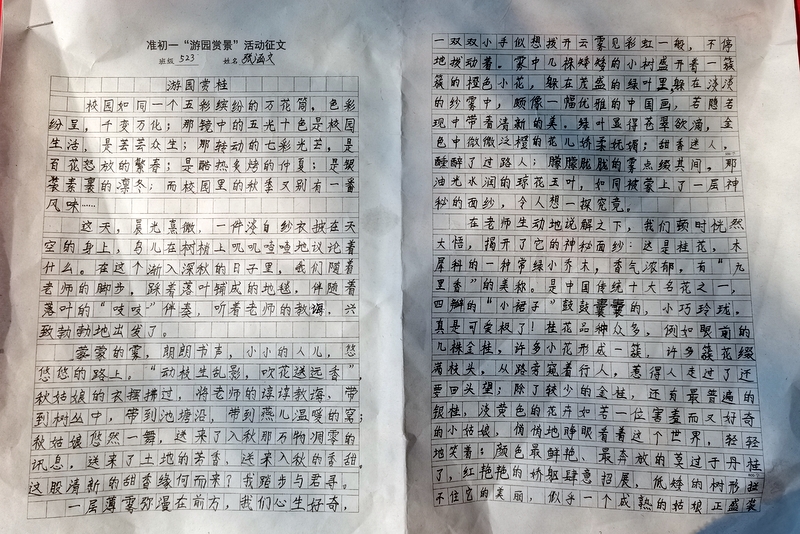 准初一“游园赏景”活动征文
班级 523 姓名 张涵文
游园赏桂
校园如同一个五彩缤纷的万花筒，色彩
纷呈，千变万化；那镜中的五光十色是校园
生活，是芸芸众生；那转动的七彩光芒，是
百花怒放的繁春；是酷热炙烤的仲夏；是银
装素裹的凛冬；而校园里的秋季又别有一番
风味……
这天，晨光熹微，一件淡白纱衣披在天
空的身上，鸟儿在树梢上叽叽喳喳地议论着
什么。在这个渐入深秋的日子里，我们随着
老师的脚步，踩着落叶铺成的地毯，伴随着
落叶的“吱吱”伴奏，听着老师的教诲，兴
致勃勃地出发了。
蒙蒙的雾，朗朗书声，小小的人儿，悠
悠悠的路上，“动枝生乱影，吹花送远香”，
秋姑娘的衣摆拂过，将老师的谆谆教诲，带
到树丛中，带到池塘沿，带到燕儿温暖的窝；
秋姑娘悠然一舞，送来了入秋那万物凋零的
讯息，送来了土地的芳香，送来入秋的香甜。
这股清新的甜香缘何而来？我踏步与君寻。
一层薄雾弥漫在前方，我们心生好奇，
一双双小手似想拨开云雾见彩虹一般，不停
地拨动着。雾中几株矮矮的小树盛开着一簇
簇的橙色小花，躲在茂盛的绿叶里躲在淡淡
的纱雾中，颇像一幅优雅的中国画，若隐若
现中带着清新的美。绿叶显得苍翠欲滴，金
色中微微泛橙的花儿娇柔抚媚；甜香迷人，
醉了过路人；朦朦胧胧的雾点缀其间，那
油光水润的琼花玉叶，如同被蒙上了一层神
秘的面纱，令人想一探究竟。
在老师生动地说解之下，我们顿时恍然
大悟，揭开了它的神秘面纱：这是桂花，木
犀科的一种常绿小乔木，香气浓郁，有“九
里香”的美称。是中国传统十大名花之一，
四瓣的“小裙子”鼓鼓囊囊的，小巧玲珑，
真是可爱极了！桂花品种众多，例如眼前的
几株金桂，许多小花形成一簇，许多簇花缀
满枝头，从路旁窥着行人，惹得人走过了还
要回头望；除了较少的金桂，还有最普遍的
银桂，淡黄色的花卉如若一位害羞而又好奇
的小姑娘，悄悄地睁眼看着这个世界，轻轻
地笑着；颜色最鲜艳、最奔放的莫过于丹桂
了，红艳艳的娇躯肆意招展，低矮的树形拦
不住它的美丽，似乎一个成熟的姑娘正盛装